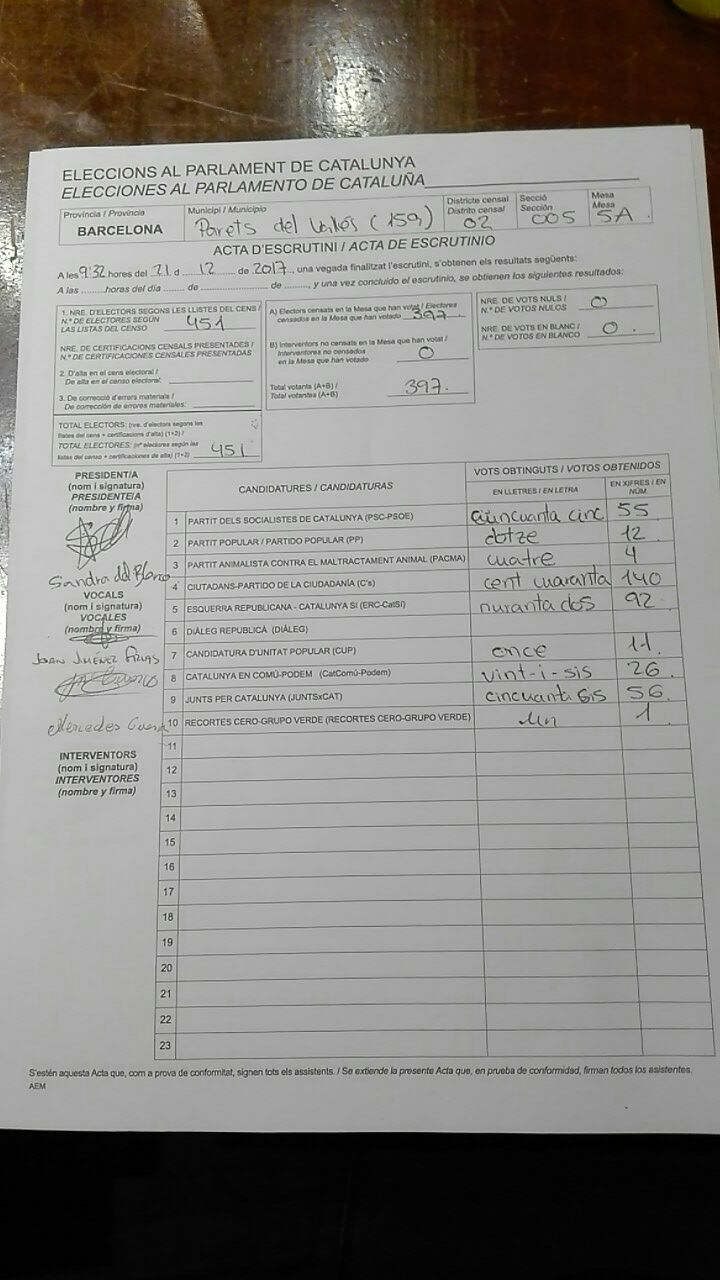 ELECCIONS AL PARLAMENT DE CATALUNYA
ELECCIONES AL PARLAMENTO DE CATALUÑA
Província / Provincia
BARCELONA
Municipi / Municipio
Parets del Vallés (159)
Districte censal
Distrito censal
02
Secció
Sección
005
Mesa
Mesa
5A
ACTA D'ESCRUTINI / ACTA DE ESCRUTINIO
A les 9:32 hores del 21 d 12 de 2017, una vegada finalitzat l'escrutini, s'obtenen els resultats següents:
A las ......... horas del día ....... de ..................... de ........, y una vez concluido el escrutinio, se obtienen los siguientes resultados:
1. NRE. D'ELECTORS SEGONS LES LLISTES DEL CENS /
N.º DE ELECTORES SEGÚN
LAS LISTAS DEL CENSO 451
NRE. DE CERTIFICACIONS CENSALS PRESENTADES /
N.º DE CERTIFICACIONES CENSALES PRESENTADAS
2. D'alta en el cens electoral /
De alta en el censo electoral:
3. De correcció d'errors materials /
De corrección de errores materiales:
TOTAL ELECTORS: (nre. d'electors segons les
llistes del cens + certificacions d'alta) (1+2) /
TOTAL ELECTORES: (nº electores según las
listas del censo + certificaciones de alta) (1+2) 451
A) Electors censats en la Mesa que han votat / Electores
censados en la Mesa que han votado 397
B) Interventors no censats en la Mesa que han votat /
Interventores no censados
en la Mesa que han votado 0
Total votants (A+B) /
Total votantes (A+B) 397
NRE. DE VOTS NULS /
N.º DE VOTOS NULOS 0
NRE. DE VOTS EN BLANC /
N.º DE VOTOS EN BLANCO 0
PRESIDENT/A
(nom i signatura)
PRESIDENTE/A
(nombre y firma)
Sandra del Blanco
VOCALS
(nom i signatura)
VOCALES
(nombre y firma)
JOAN JIMÉNEZ
Mercedes
INTERVENTORS
(nom i signatura)
INTERVENTORES
(nombre y firma)
CANDIDATURES / CANDIDATURAS
VOTS OBTINGUTS / VOTOS OBTENIDOS
EN LLETRES / EN LETRA
EN XIFRES / EN NÚM.
1 PARTIT DELS SOCIALISTES DE CATALUNYA (PSC-PSOE) cinc 55
2 PARTIT POPULAR / PARTIDO POPULAR (PP) dotze 12
3 PARTIT ANIMALISTA CONTRA EL MALTRACTAMENT ANIMAL (PACMA) cuatre 4
4 CIUTADANS-PARTIDO DE LA CIUDADANÍA (C's) cent cuaranta 140
5 ESQUERRA REPUBLICANA - CATALUNYA SÍ (ERC-CatSí) nuranta dos 92
6 DIÀLEG REPUBLICÀ (DIÀLEG)
7 CANDIDATURA D'UNITAT POPULAR (CUP) once 11
8 CATALUNYA EN COMÚ-PODEM (CatComú-Podem) vint-i-sis 26
9 JUNTS PER CATALUNYA (JUNTSxCAT) cincuanta sis 56
10 RECORTES CERO-GRUPO VERDE (RECORTES CERO-GRUPO VERDE) un 1
11
12
13
14
15
16
17
18
19
20
21
22
23
S'estén aquesta Acta que, com a prova de conformitat, signen tots els assistents. / Se extiende la presente Acta que, en prueba de conformidad, firman todos los asistentes.
AEM